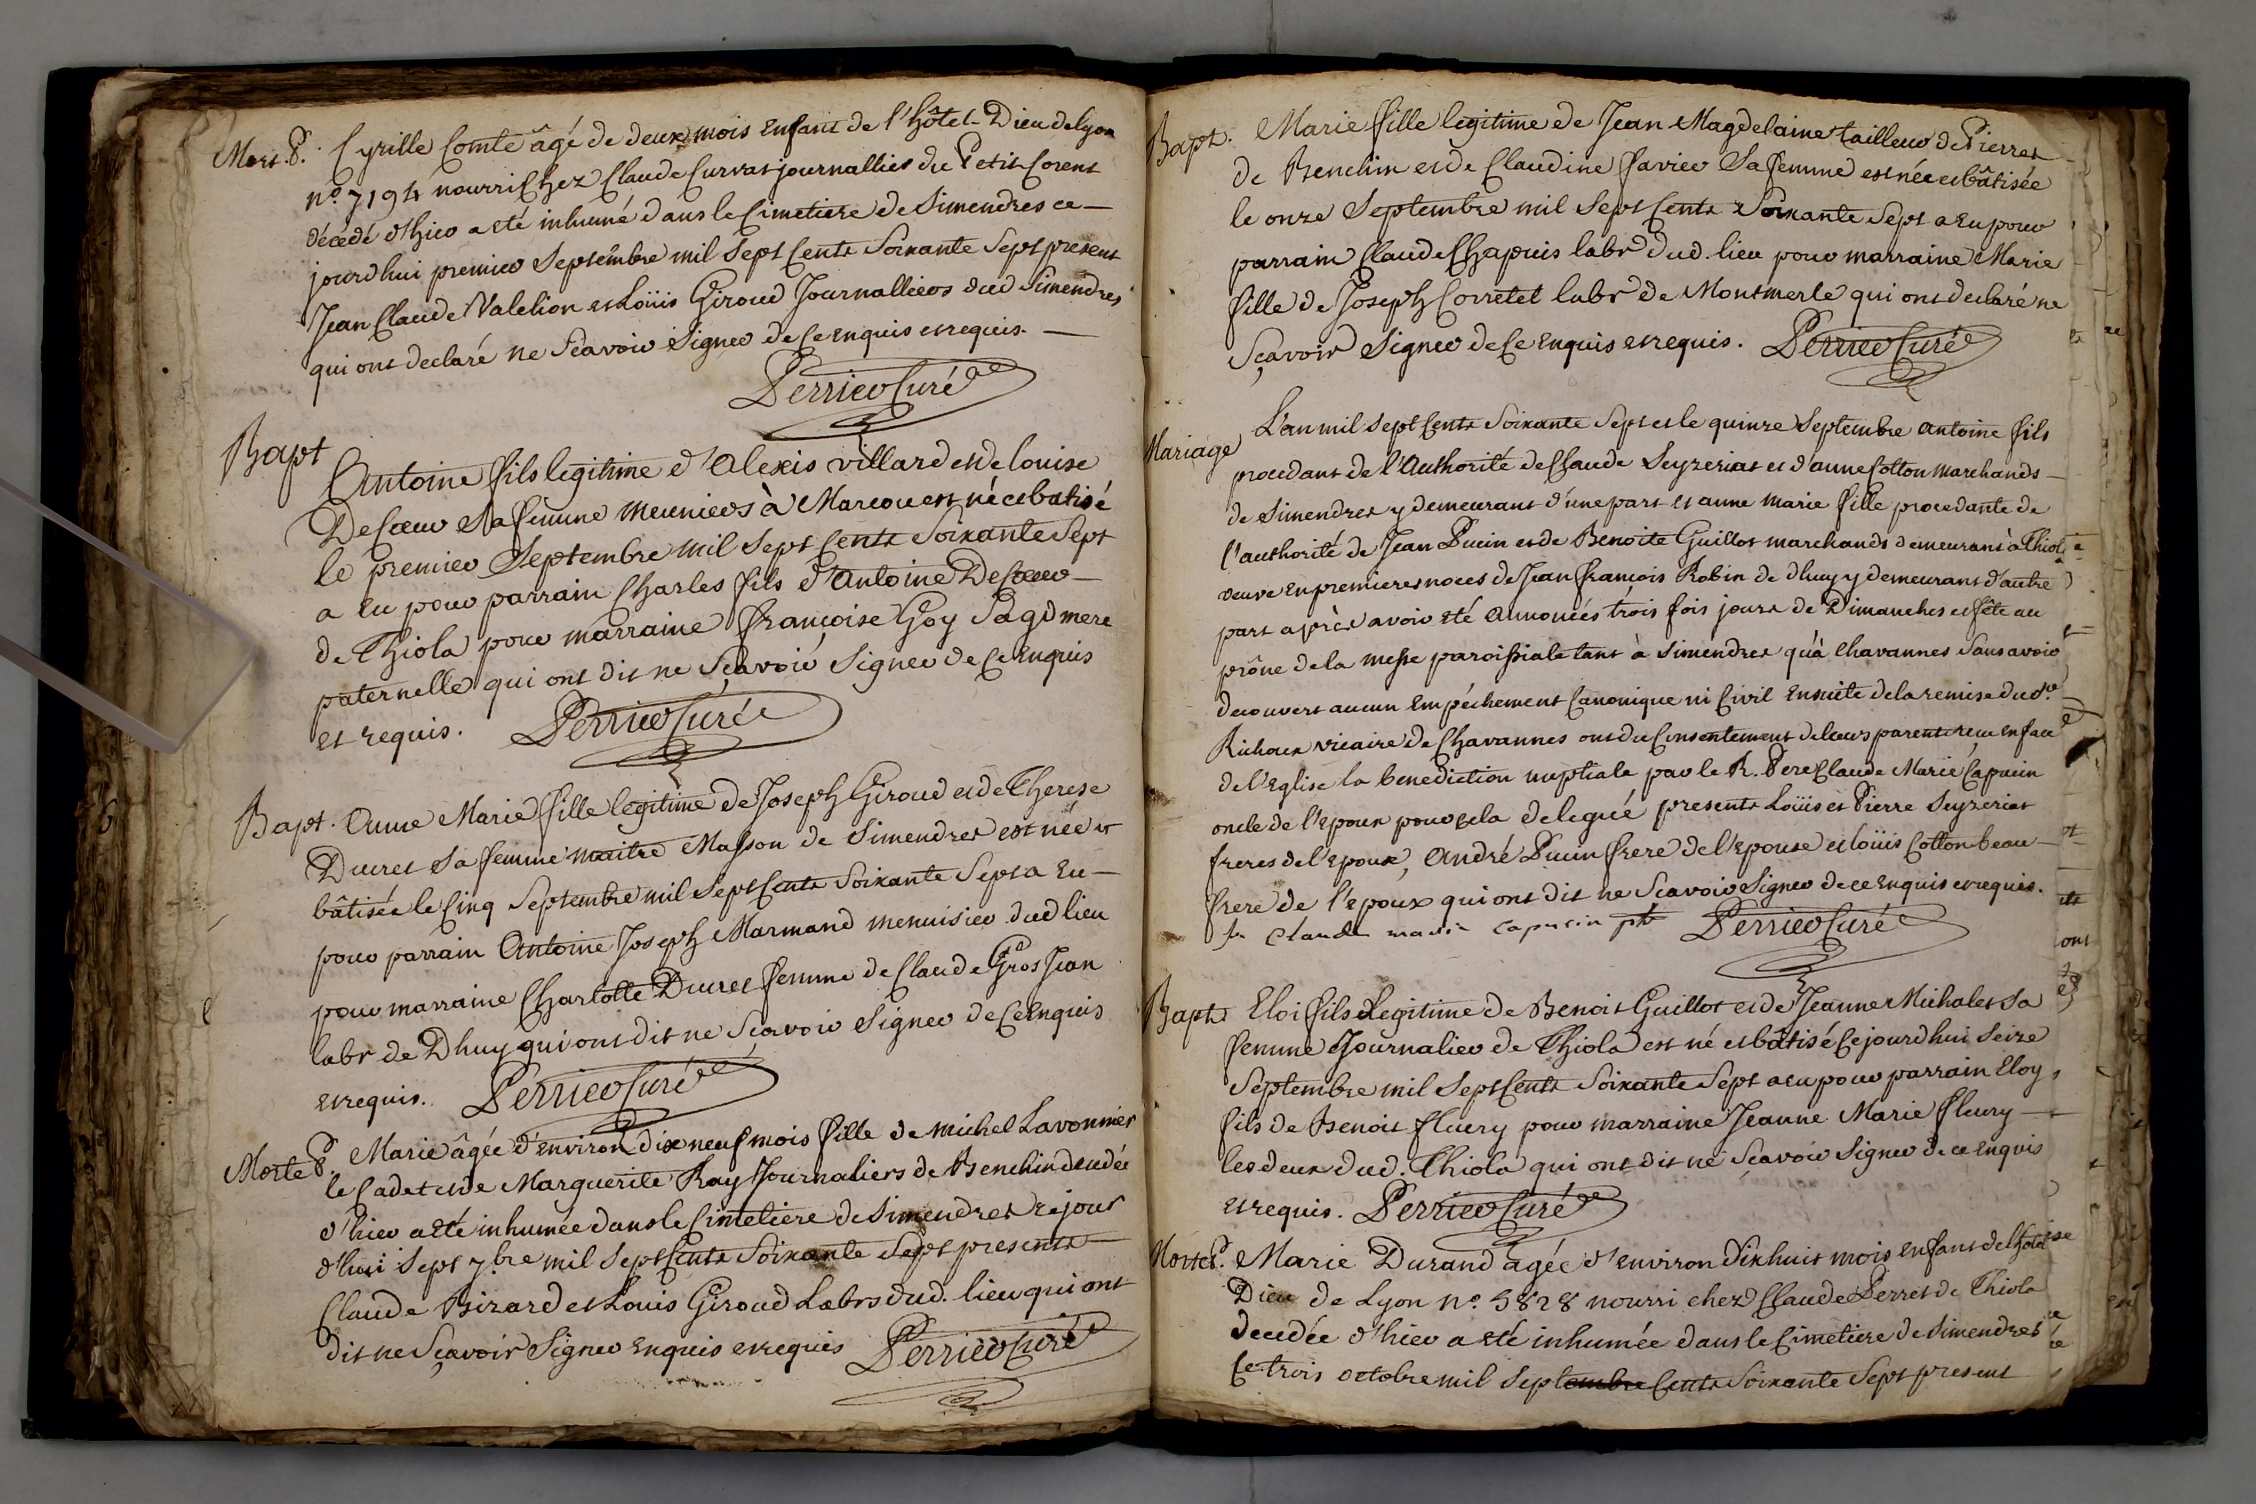 Mort. P. Cyrille Comte âgé de deux mois Enfant de l'hôtel Dieu de lyon
n.º 7194 nourri Chez Claude Curvat journallier du Petit Corent
décédé d'hier a eté inhumé dans le Cimetiere de Simendres ce
jourd'hui premier Septembre mil Sept Cents Soixante Sept present
Jean Claude Valelion et Loüis Giroud Journalliers dud Simendres
qui ont declaré ne Scavoir Signer de Ce enquis et requis.
Perrier Curé
Bapt
Antoine fils legitime d'Alexis villard et de louise
Decœur Sa femme meuniers à Marcou est né et batisé
le premier Septembre mil Sept Cents Soixante Sept
a eu pour parrain Charles fils d'Antoine Decœur
de Thiola pour marraine françoise Goy Sa gd mere
paternelle qui ont dit ne Sçavoir Signer de Ce enquis
et requis. Perrier Curé
Bapt. Anne Marie fille legitime de Joseph Giroud et de Therese
Ducret Sa femme maitre Masson de Simendres est née et
bâtisée le Cinq Septembre mil Sept Cents Soixante Sept a Eu
pour parrain Antoine Joseph Marmand menuisier dud lieu
pour marraine Charlotte Ducret femme de Claude Gros Jean
labr de Dhuy qui ont dit ne Scavoir Signer de Ce enquis
et requis. Perrier Curé
Morte P. Marie âgée d'environ dix neuf mois fille de michel Lavonnier
le Cadet et de Marguerite Ray Journaliers de Benchin decedée
d'hier a eté inhumée dans le Cimetiere de Simendres ce jour
d'hui Sept 7bre mil Sept Cents Soixante Sept presents
Claude Birard et Louis Giroud Labrs dud. lieu qui ont
dit ne Sçavoir Signer enquis et requis Perrier Curé
Bapt. Marie fille legitime de Jean Magdelaine tailleur de Pierres
de Benchin et de Claudine favier Sa femme est née et bâtisée
le onze Septembre mil Sept Cents Soixante Sept a eu pour
parrain Claude Chapuis labr dud. lieu pour marraine Marie
fille de Joseph Corretel labr de Montmerle qui ont declaré ne
Sçavoir Signer de Ce enquis et requis. Perrier Curé
L'an mil Sept Cents Soixante Sept et le quinze Septembre antoine fils
Mariage
procedant de l'Authorité de Claude Seyzeriat et d'anne Cotton marchands
de Simendres y demeurant d'une part et anne marie fille procedante de
l'authorité de Jean Pucin et de Benoite Guillot marchands demeurant à Thiola
veuve en premieres noces de Jean françois Robin de dhuy y demeurant d'autre
part après avoir eté annoncés trois fois jours de Dimanches et fête au
prône de la messe paroissiale tant à Simendres qu'à Chavannes Sans avoir
decouvert aucun empéchement Canonique ni Civil ensuite de la remise du Sr
Richoux vicaire de Chavannes ont du Consentement de leurs parents reçu en face
de l'Eglise la benediction nuptiale par le R. Pere Claude Marie Capucin
oncle de l'epoux pour cela delegué presents Loüis et Pierre Seyzeriat
freres de l'epoux, André Pucin frere de l'epouse et loüis Cotton beau
frere de l'epoux qui ont dit ne Scavoir Signer de ce enquis et requis.
fr Claude marie capucin ptre Perrier Curé
Bapt. Eloi fils legitime de Benoit Guillot et de Jeanne Michalet Sa
femme Journalier de Thiola est né et bâtisé Ce jourd'hui Seize
Septembre mil Sept Cents Soixante Sept a eu pour parrain Eloy
fils de Benoit fleury pour marraine Jeanne Marie fleury
les deux dud. Thiola qui ont dit ne Sçavoir Signer de ce enquis
et requis. Perrier Curé
Morte P. Marie Durand agée d'environ Dixhuit mois enfant de l'hotel
Dieu de Lyon n.º 5828 nourri chez Claude Perret de Thiola
decedée d'hier a eté inhumée dans le Cimetiere de Simendres
Ce trois octobre mil Septembre Cents Soixante Sept present